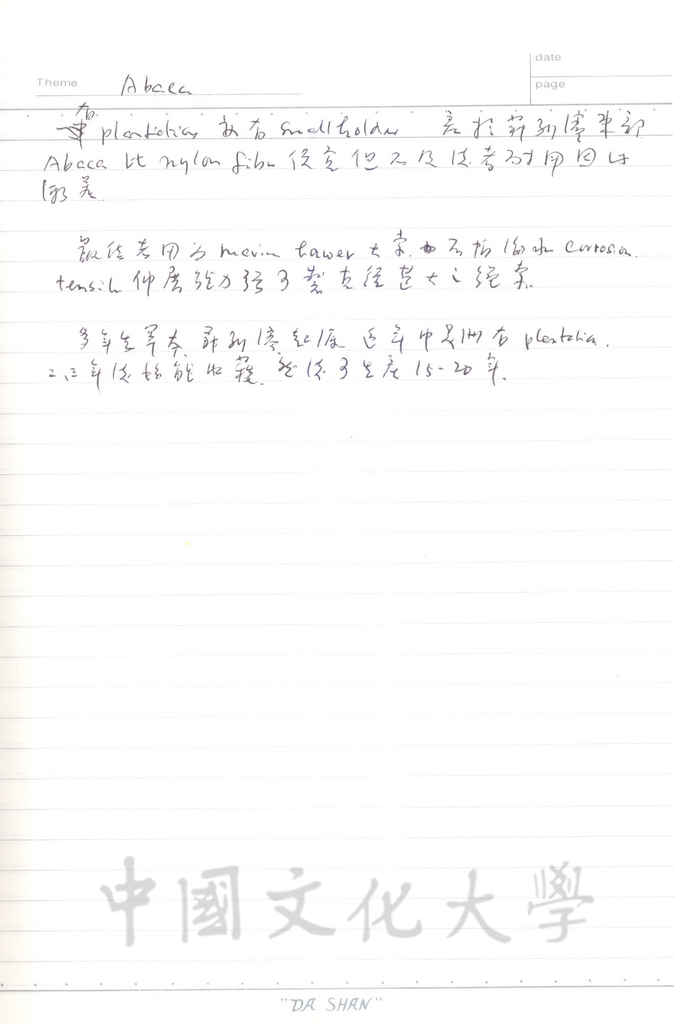 date
Theme Abaca
page
有 plantation 亦有 smallholder 產於菲列濱東部
Abaca 比 nylon fiber 便宜但不及後者耐用因
最佳者用為 marine hawser 大索 不怕海水 corrosion.
tensile 伸展強力強可製直徑甚大之繩索.
多年生草本, 菲列濱起源 近年中美洲有 plantation.
二、三年後始能收穫, 然後可生產 15-20 年.
中國文化大學
"DA SHAN"